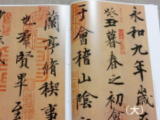 永和九年歲
癸丑暮春之初
于會稽山陰
蘭亭脩稧事
也群賢畢至
(大)